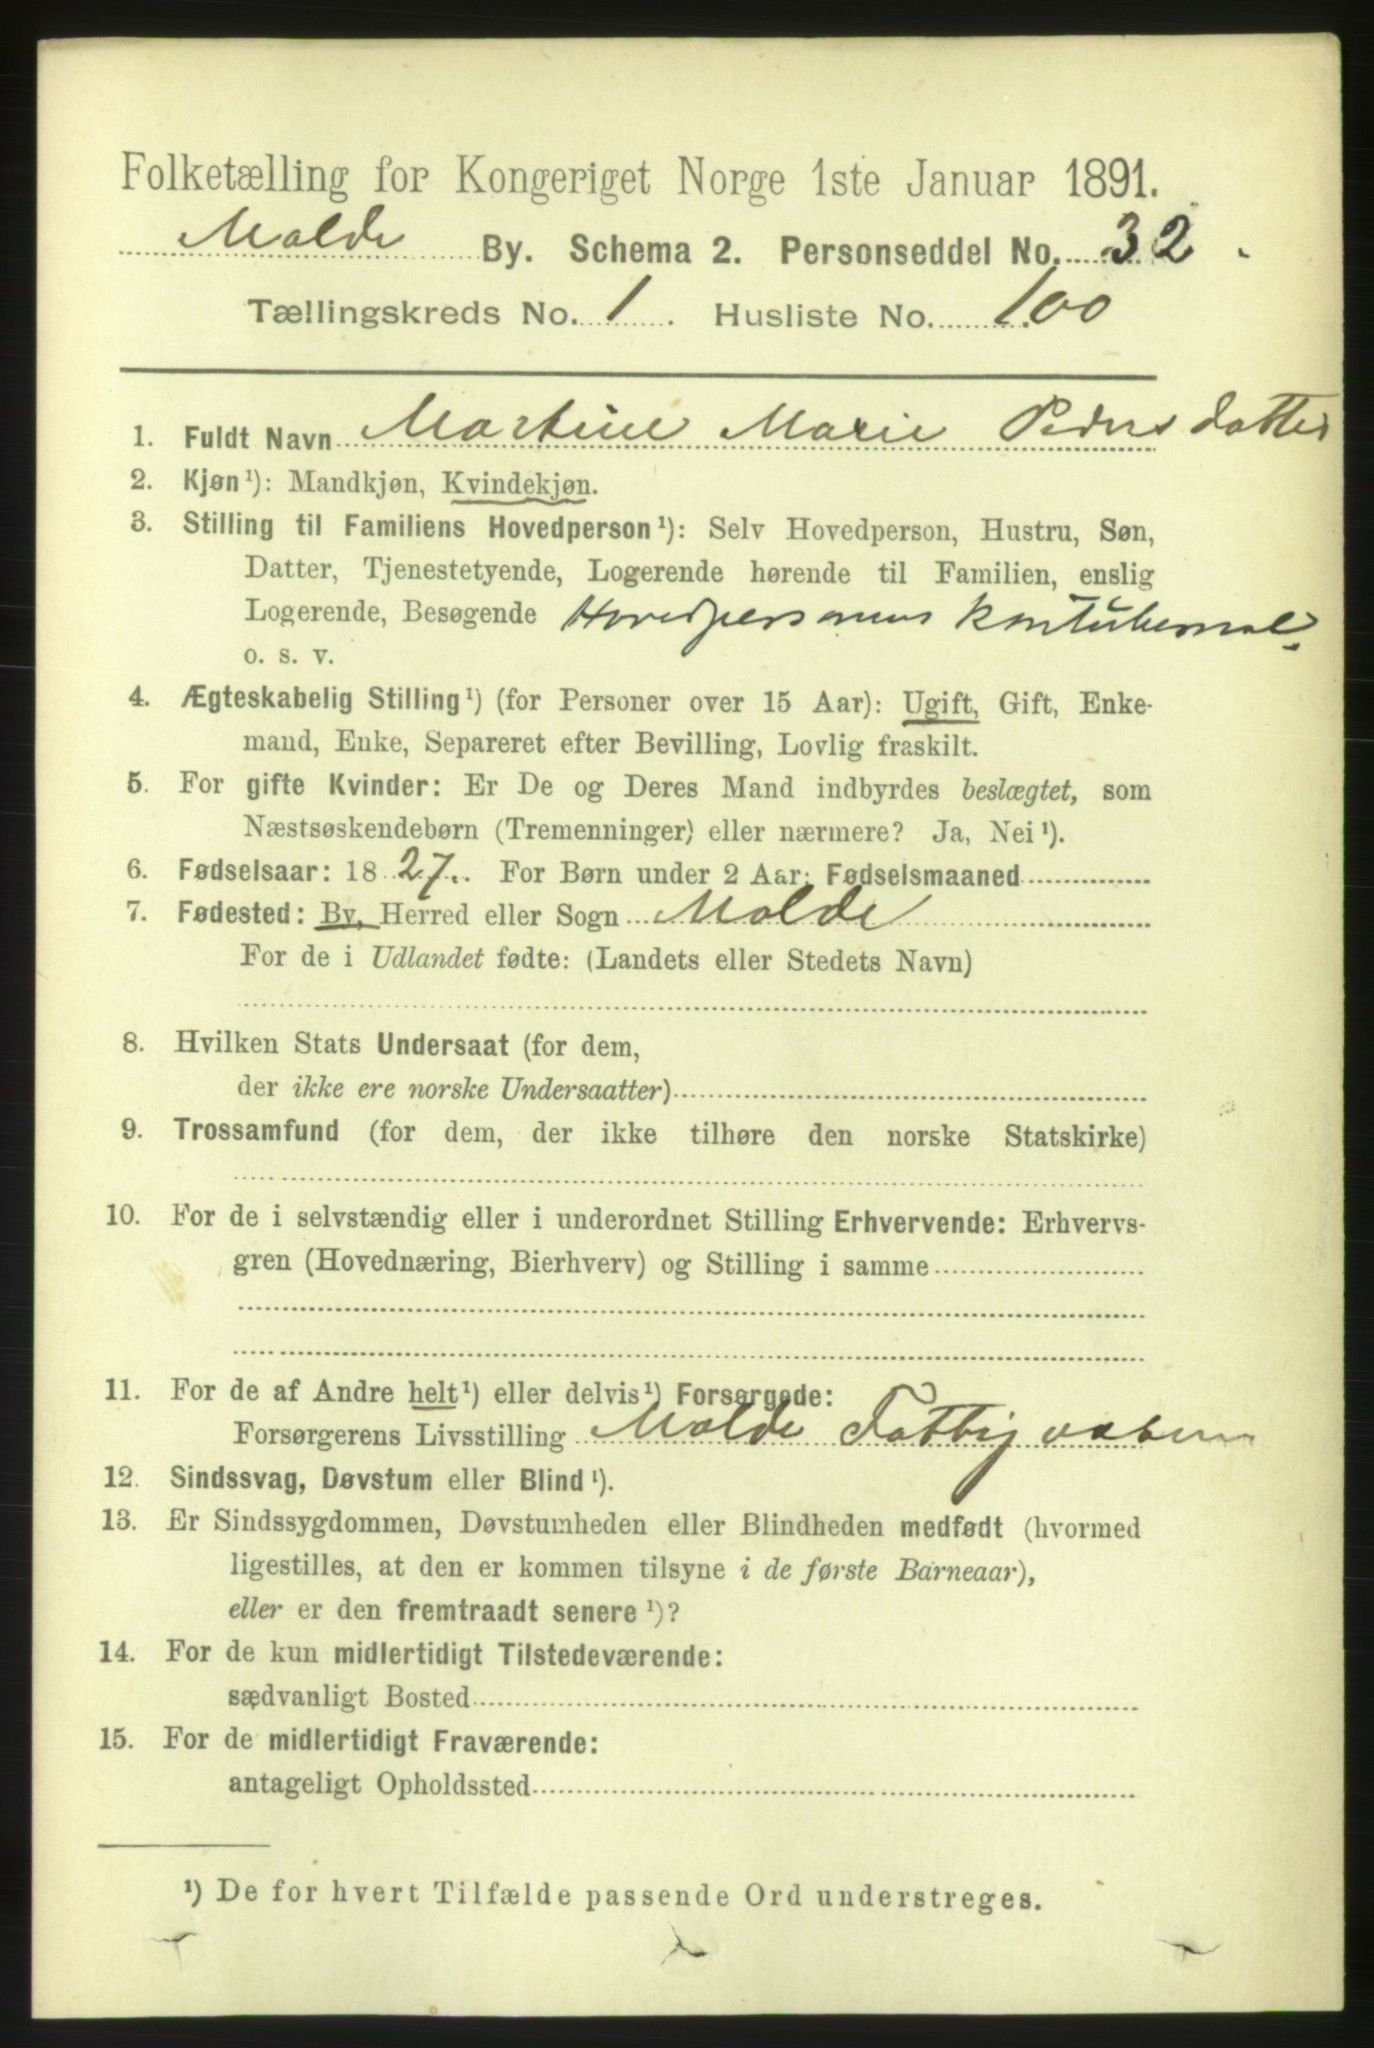 Folketælling for Kongeriget Norge 1ste Januar 1891.
Molde By. Schema 2. Personseddel No. 32.
Tællingskreds No. 1. Husliste No. 100
1. Fuldt Navn Martine Marie Pedersdatter
2. Kjøn¹): Mandkjøn, Kvindekjøn.
3. Stilling til Familiens Hovedperson¹): Selv Hovedperson, Hustru, Søn,
Datter, Tjenestetyende, Logerende hørende til Familien, enslig
Logerende, Besøgende Hovedpersonens Kontubernal.
o. s. v.
4. Ægteskabelig Stilling¹) (for Personer over 15 Aar): Ugift, Gift, Enke-
mand, Enke, Separeret efter Bevilling, Lovlig fraskilt.
5. For gifte Kvinder: Er De og Deres Mand indbyrdes beslægtet, som
Næstsøskendebørn (Tremenninger) eller nærmere? Ja, Nei¹).
6. Fødselsaar: 1827. For Børn under 2 Aar: Fødselsmaaned
7. Fødested: By, Herred eller Sogn Molde
For de i Udlandet fødte: (Landets eller Stedets Navn)
8. Hvilken Stats Undersaat (for dem,
der ikke ere norske Undersaatter)
9. Trossamfund (for dem, der ikke tilhøre den norske Statskirke)
10. For de i selvstændig eller i underordnet Stilling Erhvervende: Erhvervs-
gren (Hovednæring, Bierhverv) og Stilling i samme
11. For de af Andre helt¹) eller delvis¹) Forsørgede:
Forsørgerens Livsstilling Molde Fattigvæsen
12. Sindssvag, Døvstum eller Blind¹).
13. Er Sindssygdommen, Døvstumheden eller Blindheden medfødt (hvormed
ligestilles, at den er kommen tilsyne i de første Barneaar),
eller er den fremtraadt senere¹)?
14. For de kun midlertidigt Tilstedeværende:
sædvanligt Bosted
15. For de midlertidigt Fraværende:
antageligt Opholdssted
¹) De for hvert Tilfælde passende Ord understreges.